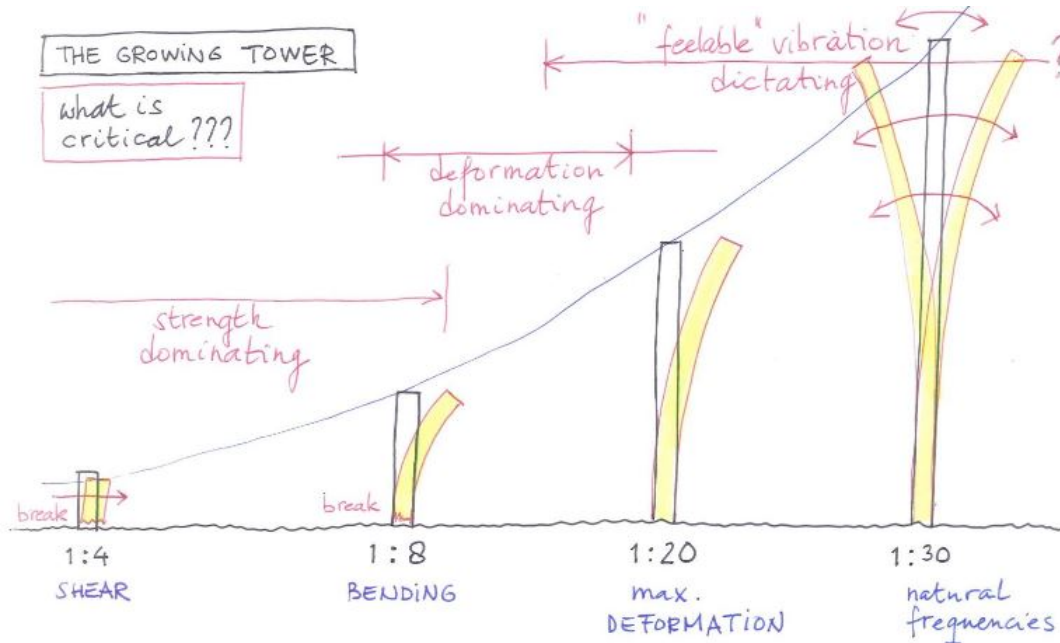 THE GROWING TOWER
what is
critical ???
"feelable" vibration
dictating
?
deformation
dominating
strength
dominating
break
break
1:4
1:8
1:20
1:30
SHEAR
BENDING
max.
DEFORMATION
natural
frequencies